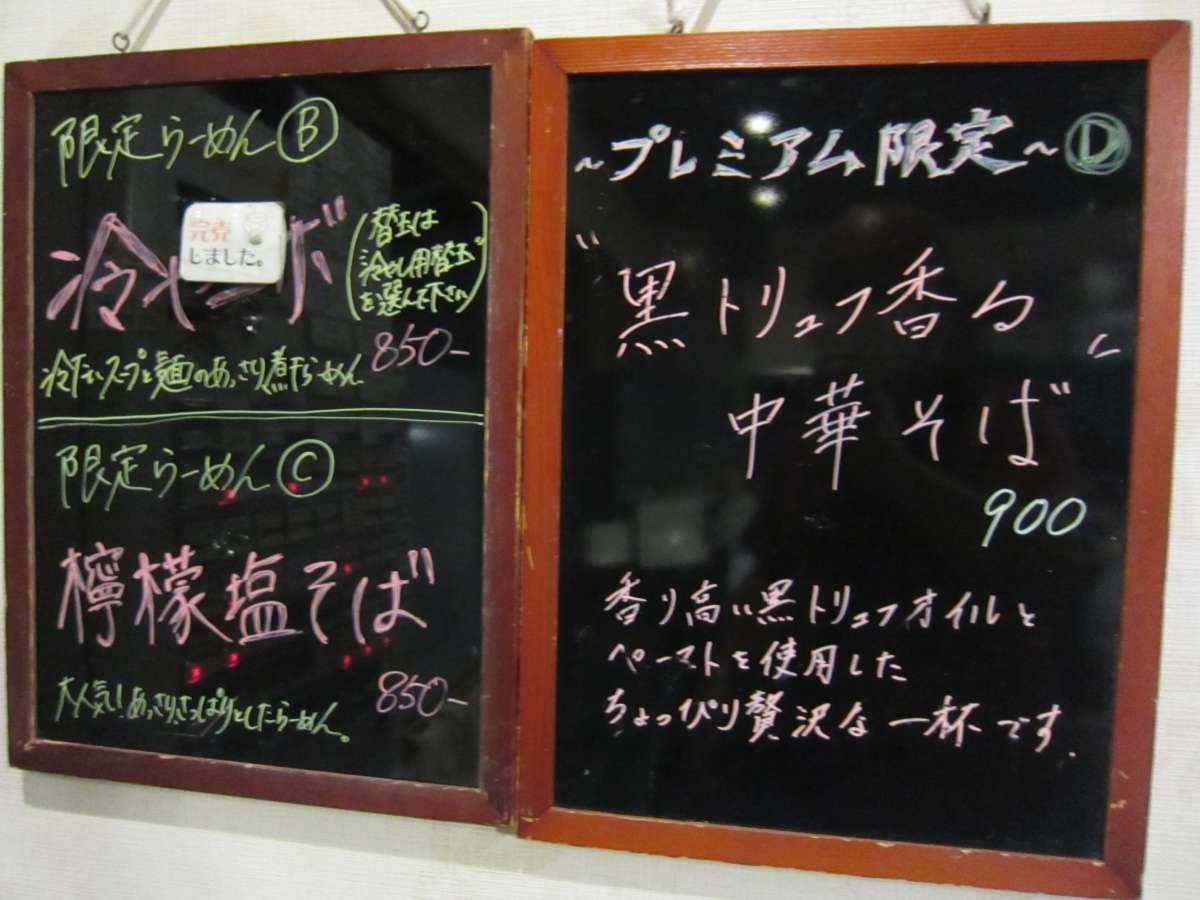 限定らーめん Ⓑ
冷や
ば
完売
しました。
(替玉は
冷やし用替玉
を選んで下さい)
850-
冷たいスープと麺のあっさり煮干らーめん
限定らーめん Ⓒ
檸檬塩そば
850-
大人気!あっさりさっぱりとしたらーめん。
~プレミアム限定~ Ⓓ
"黒トリュフ香る"
中華そば
900
香り高い黒トリュフオイルと
ペーストを使用した
ちょっぴり贅沢な一杯です.